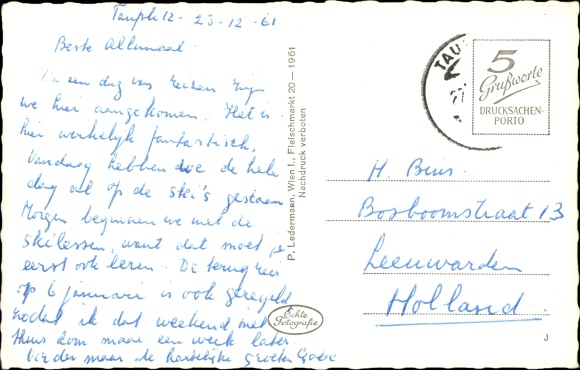 Tauplitz - 23-12-61
Beste Allemaal.
Na een dag van reizen zijn
we hier aangekomen. Het is
hier werkelijk fantastisch.
Vandaag hebben we de hele
dag al op de ski's gestaan
Morgen beginnen we met de
skilessen, want dat moet je
eerst ook leren. De terugreis
op 6 januari is ook geregeld
zodat ik dat weekend niet
thuis kom maar een week later
Verder maar de hartelijke groeten
P. Ledermann, Wien I., Fleischmarkt 20 — 1961
Nachdruck verboten
Echte
Fotografie
TAU
27
5
Grußworte
DRUCKSACHEN-
PORTO
H Bins.
Bosboomstraat 13
Leeuwarden
Holland.
J